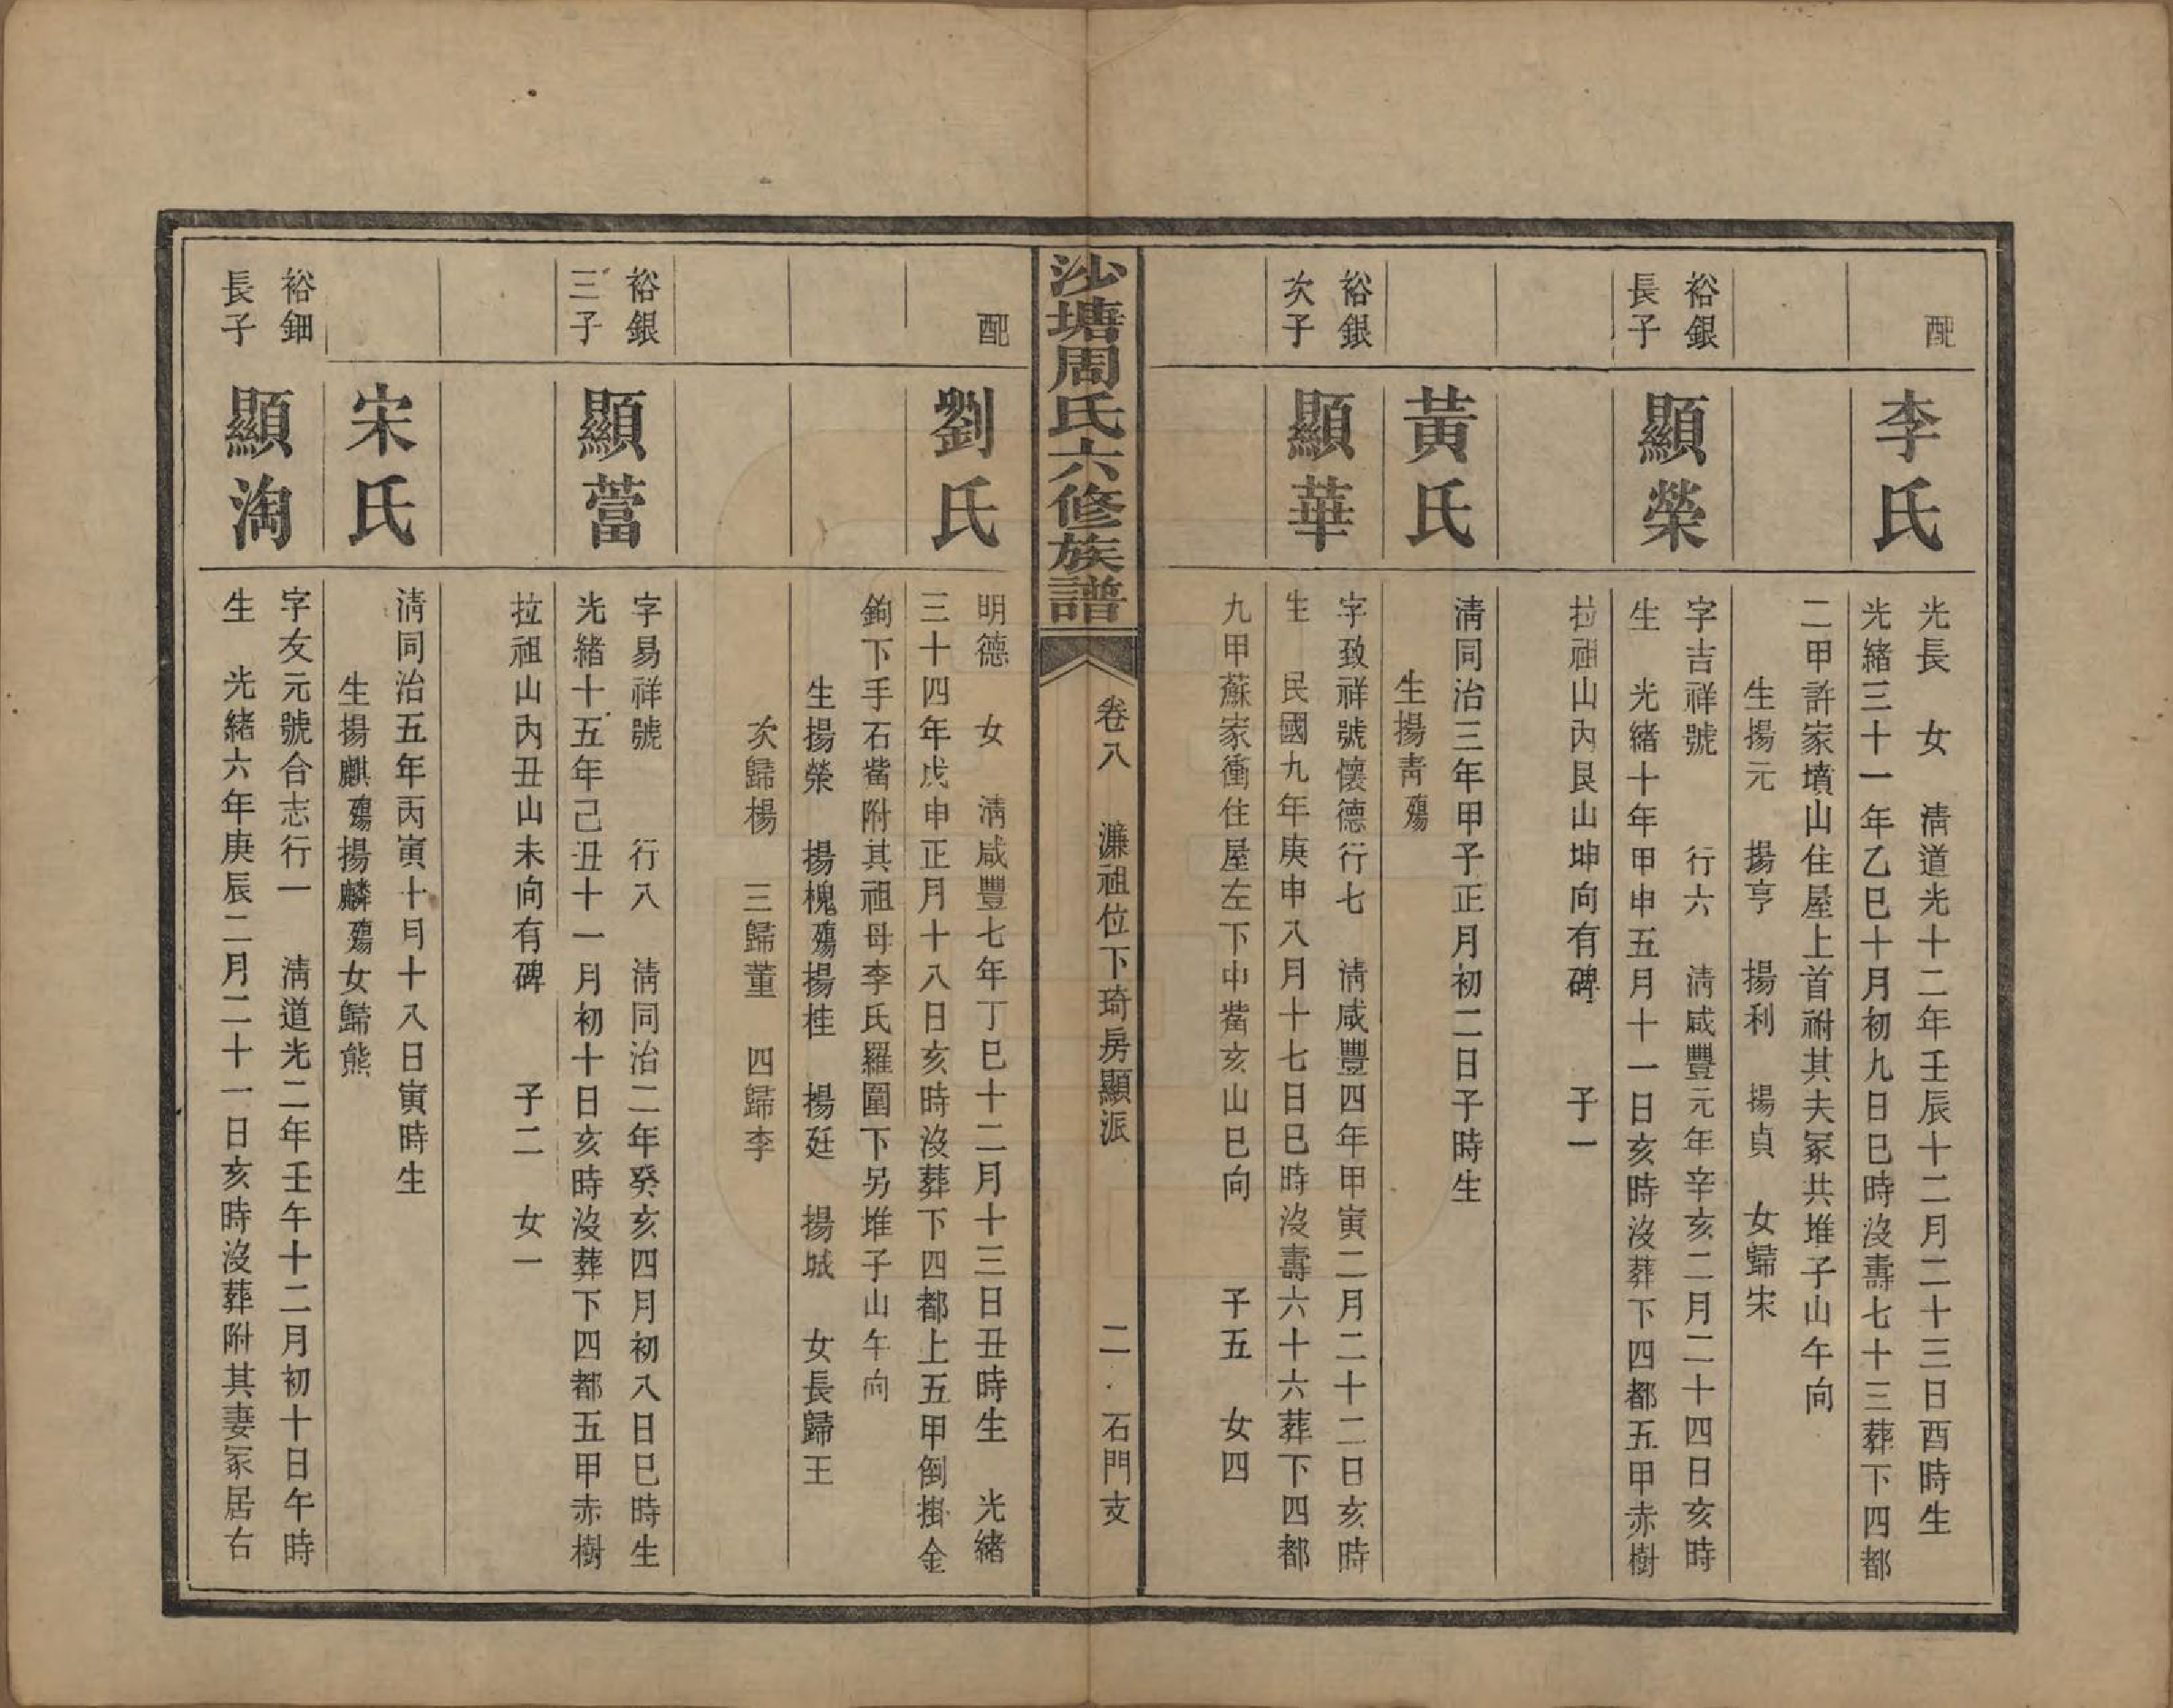 配
李氏
光長　女　清道光十二年壬辰十二月二十三日酉時生
光緒三十一年乙巳十月初九日巳時沒壽七十三葬下四都
二甲許家墳山住屋上首祔其夫冢共堆子山午向
生揚元　揚亨　揚利　揚貞　女歸宋
裕銀
長子
顯榮
字吉祥號　　行六　清咸豐元年辛亥二月二十四日亥時
生　光緒十年甲申五月十一日亥時沒葬下四都五甲赤樹
拉祖山內艮山坤向有碑　　子一
黃氏
清同治三年甲子正月初二日子時生
生揚青殤
裕銀
次子
顯華
字致祥號懷德行七　清咸豐四年甲寅二月二十二日亥時
生　民國九年庚申八月十七日巳時沒壽六十六葬下四都
九甲蘇家衝住屋左下中嘴亥山巳向　　子五　女四
沙塘周氏六修族譜
卷八　濂祖位下琦房顯派
二　石門支
配
劉氏
明德　女　清咸豐七年丁巳十二月十三日丑時生　光緒
三十四年戊申正月十八日亥時沒葬下四都上五甲倒掛金
鉤下手石嘴附其祖母李氏羅圍下另堆子山午向
生揚榮　揚槐殤揚桂　揚廷　揚城　女長歸王
次歸楊　三歸董　四歸李
裕銀
三子
顯蒏
字易祥號　　行八　清同治二年癸亥四月初八日巳時生
光緒十五年己丑十一月初十日亥時沒葬下四都五甲赤樹
拉祖山內丑山未向有碑　　子二　女一
宋氏
清同治五年丙寅十月十八日寅時生
生揚麒殤揚麟殤女歸熊
裕鈿
長子
顯淘
字友元號合志行一　清道光二年壬午十二月初十日午時
生　光緒六年庚辰二月二十一日亥時沒葬附其妻冢居右